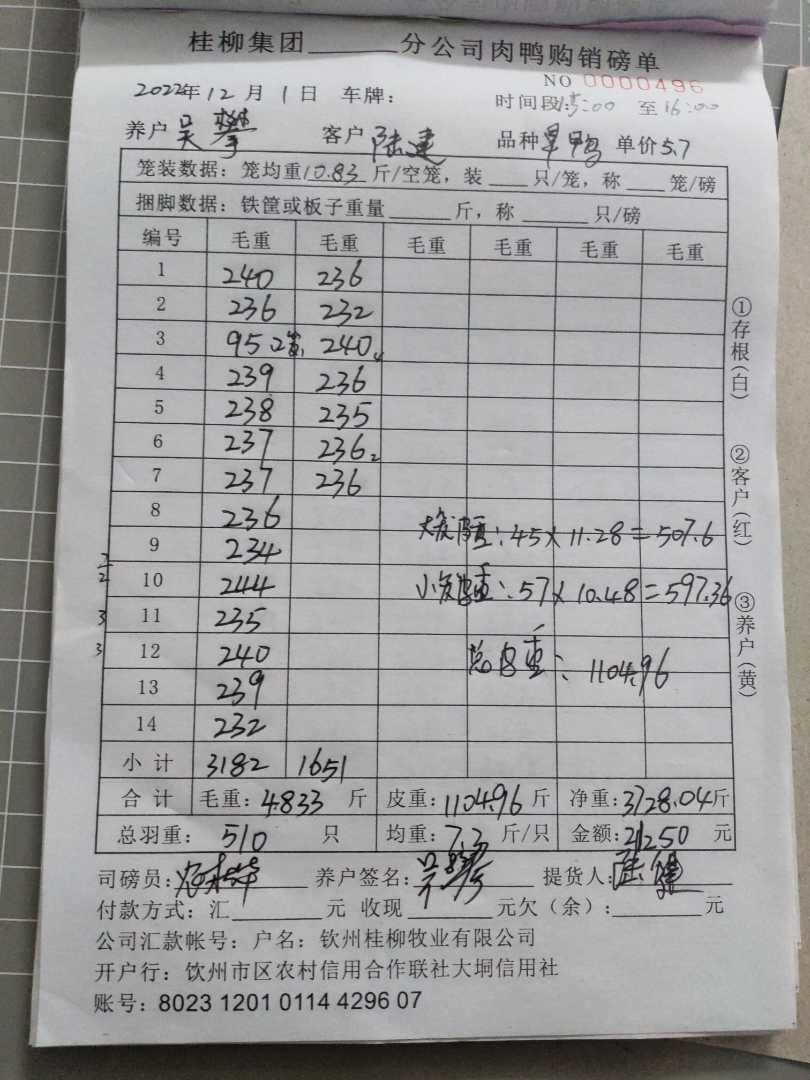 桂柳集团______分公司肉鸭购销磅单
NO 0000496
2022年12月1日 车牌: 时间段:15:00 至16:00
养户 吴攀 客户 陆建 品种 旱鸭 单价5.7
笼装数据:笼均重10.83斤/空笼,装___只/笼,称___笼/磅
捆脚数据:铁筐或板子重量_____斤,称_____只/磅
编号 毛重 毛重 毛重 毛重 毛重 毛重
1 240 236
2 236 232
3 95 2笼 240
4 239 236
5 238 235
6 237 236
7 237 236
8 236
9 234
10 244
11 235
12 240
13 239
14 232
大笼皮重:45×11.28=507.6
小笼皮重:57×10.48=597.36
总皮重:1104.96
小计 3182 1651
合计 毛重:4833斤 皮重:1104.96斤 净重:3728.04斤
总羽重: 510 只 均重:7.3斤/只 金额:21250元
司磅员: 养户签名:吴攀 提货人:陆健
付款方式:汇______元 收现______元欠(余):______元
公司汇款帐号:户名:钦州桂柳牧业有限公司
开户行:钦州市区农村信用合作联社大垌信用社
账号:8023 1201 0114 4296 07
①存根(白)
②客户(红)
③养户(黄)